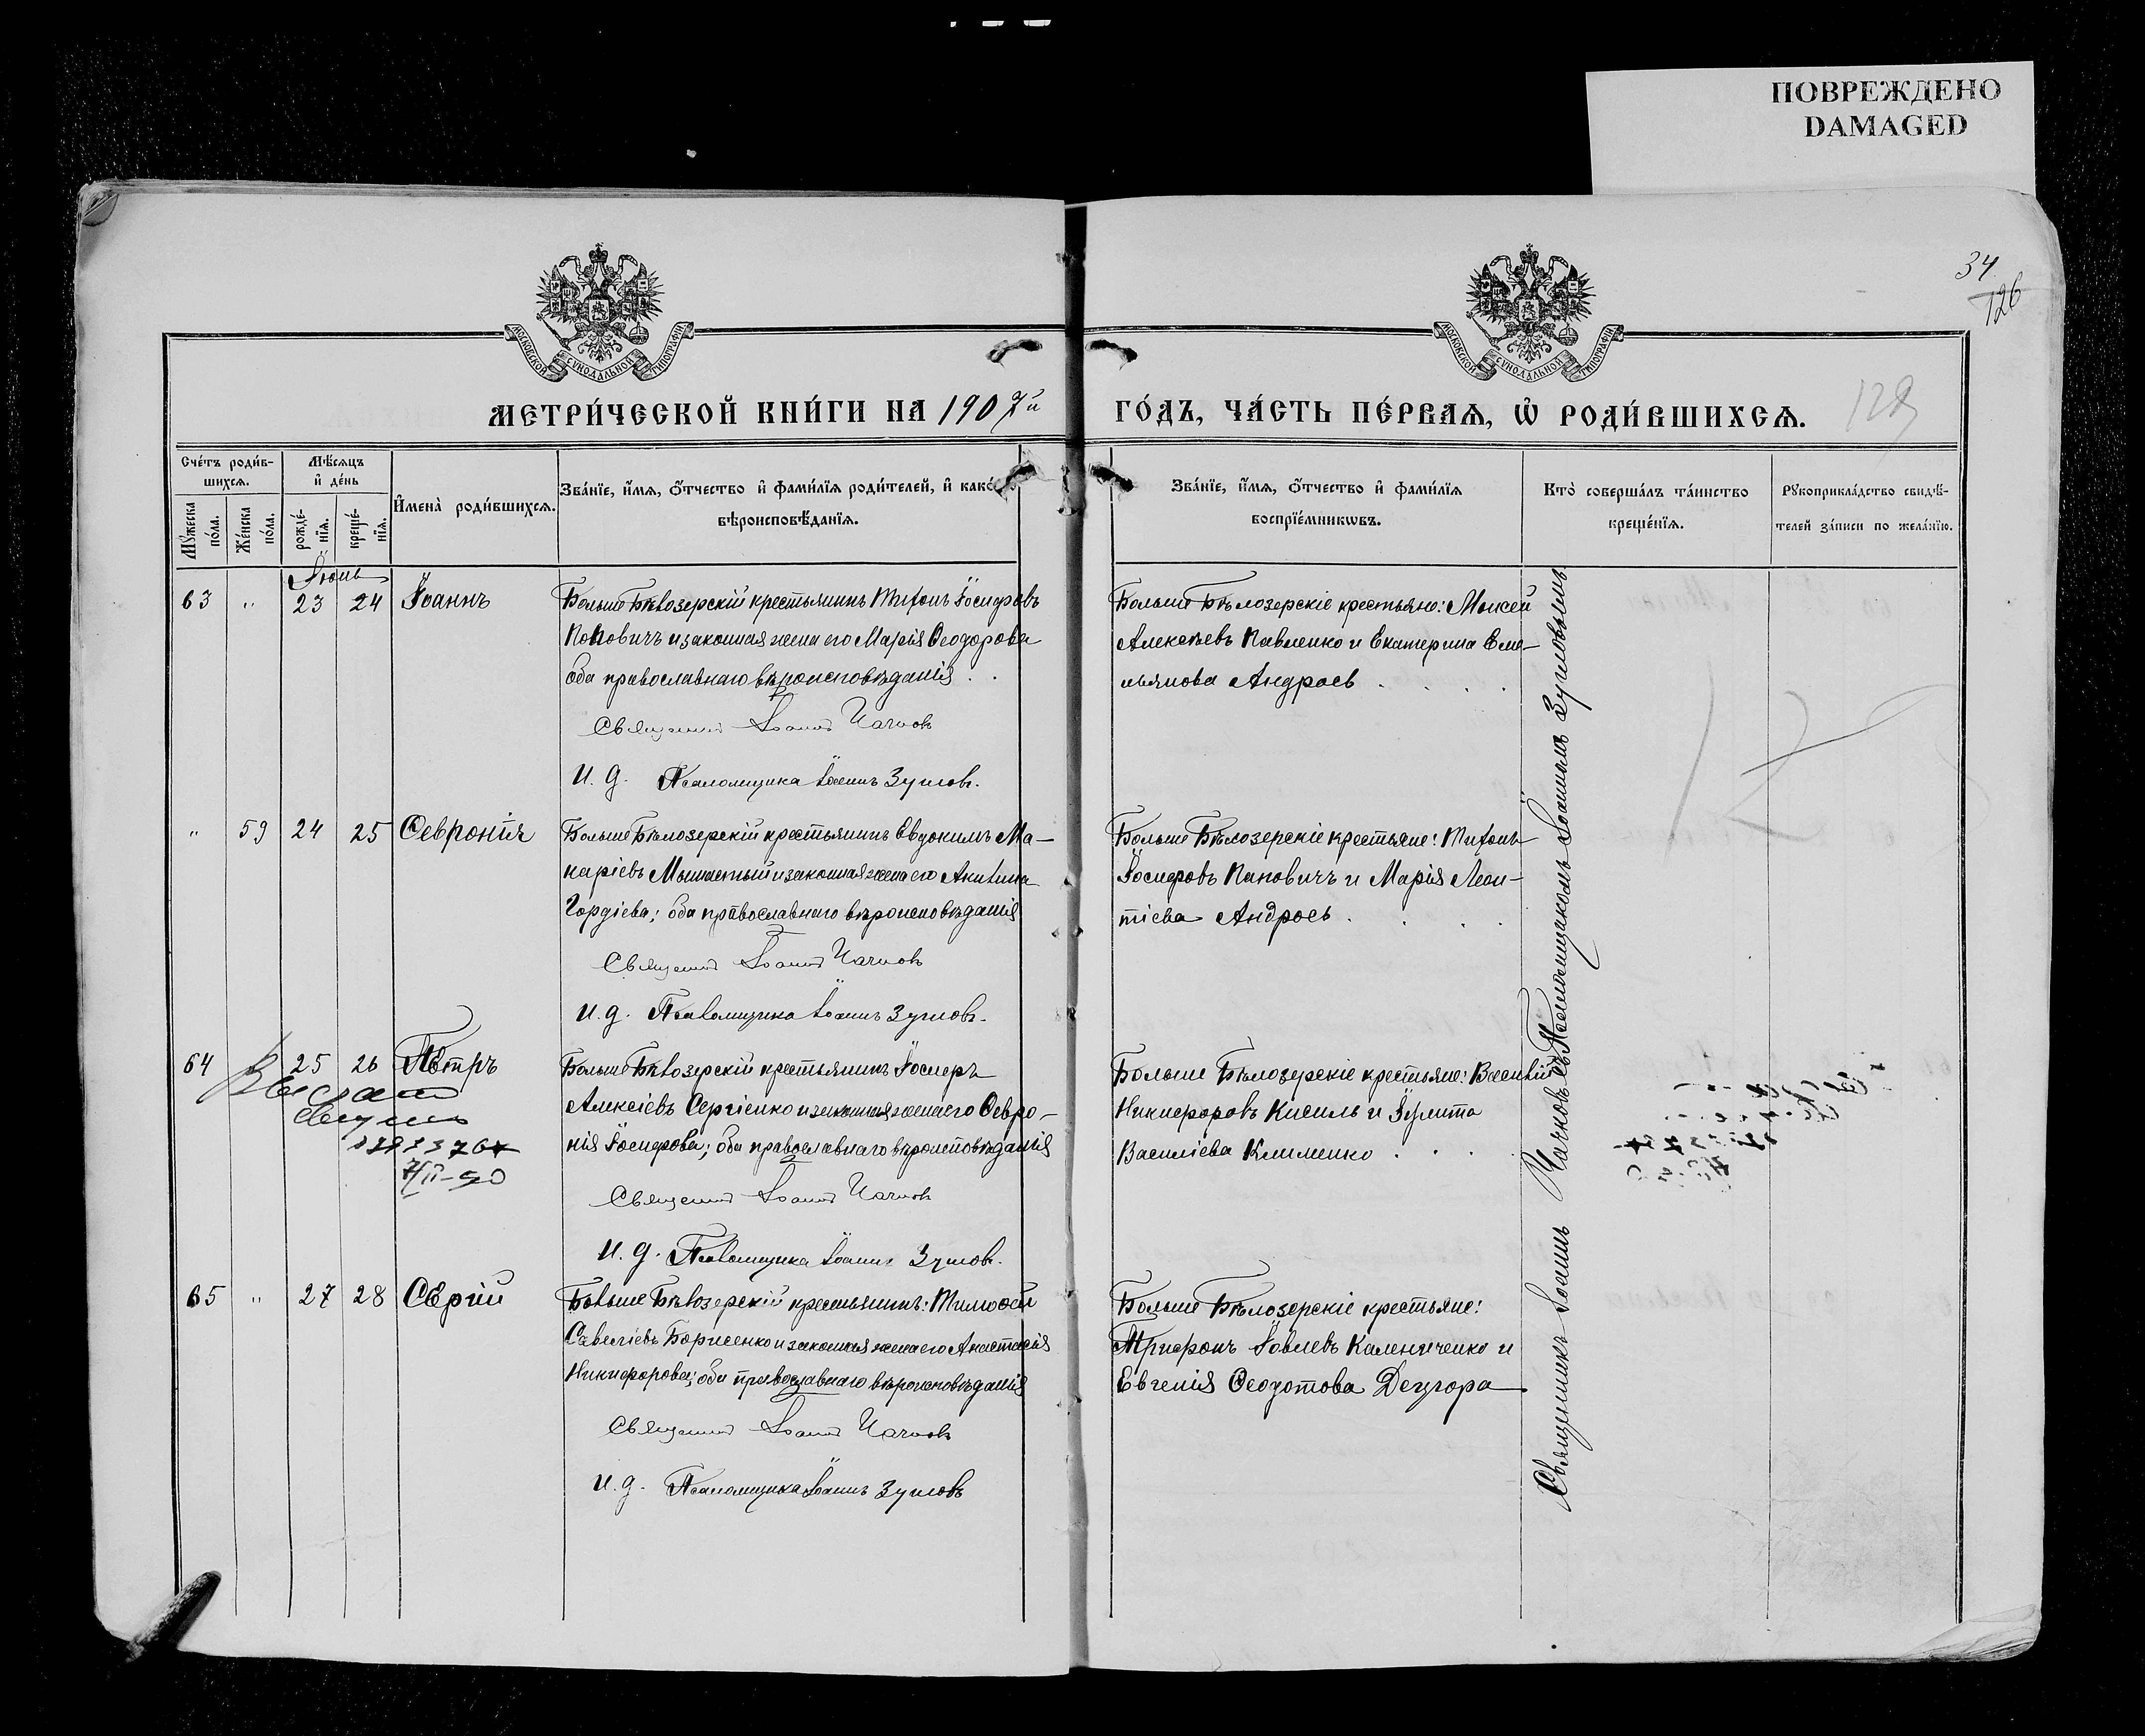 ПОВРЕЖДЕНО
DAMAGED
34
126
МОСКОВСКОЙ СѴНОДАЛЬНОЙ ТИПОГРАФІИ
МОСКОВСКОЙ СѴНОДАЛЬНОЙ ТИПОГРАФІИ
МЕТРИ́ЧЕСКОЙ КНИ́ГИ НА 1907й ГО́ДЪ, ЧА́СТЬ ПЕ́РВАѦ, Ѡ҆ РОДИ́ВШИХСѦ.
Сче́тъ роди́в-
шихсѧ.
Мѣ́сѧцъ
и҆ де́нь
Мꙋ́жеска
по́ла.
Же́нска
по́ла.
рожде́-
нїѧ.
креще́-
нїѧ.
И҆мена̀ роди́вшихсѧ.
Зва́нїе, и҆́мѧ, о҆́тчество и҆ фами́лїѧ роди́телей, и҆ како́
вѣроисповѣ́данїѧ.
Зва́нїе, и҆́мѧ, о҆́тчество и҆ фами́лїѧ
воспрїе́мникѡвъ.
Кто̀ соверша́лъ та́инство
креще́нїѧ.
Рꙋкоприкла́дство свидѣ́-
телей за́писи по жела́нїю.
Іюнь
63 " 23 24 Іоаннъ
Больше Бѣлозерскій крестьянинъ Титонъ Іосифовъ
Поповичъ и законная жена его Марія Ѳеодорова
оба православнаго вѣроисповѣданія . .
Священникъ Іоаннъ Чачковъ
И. д. Псаломщика Іоаннъ Зуиловъ.
Больше Бѣлозерскіе крестьяне: Моисей
Алексѣевъ Павленко и Екатерина Еме-
льянова Андрось . . . .
" 59 24 25 Ѳевронія
Больше Бѣлозерскій крестьянинъ Евдокимъ Ма-
каріевъ и законная жена его Акилина
Гордіева; оба православнаго вѣроисповѣданія
Священникъ Іоаннъ Чачковъ
И. д. Псаломщика Іоаннъ Зуиловъ.
Больше Бѣлозерскіе крестьяне: Титонъ
Іосифовъ Поповичъ и Марія Леон-
тіева Андрось . . . .
64 25 26 Петръ
7/II-50
Больше Бѣлозерскій крестьянинъ Іосифъ
Алексіевъ Сергіенко и законная жена его Ѳевро-
нія Іосифова; оба православнаго вѣроисповѣданія
Священникъ Іоаннъ Чачковъ
И. д. Псаломщика Іоаннъ Зуиловъ.
Больше Бѣлозерскіе крестьяне: Василій
Никифоровъ Кисиль и Іулита
Василіева Клименко . . .
65 " 27 28 Сергій
Больше Бѣлозерскій крестьянинъ: Тимоѳей
Савеліевъ Борисенко и законная жена его Анастасія
Никифорова; оба православнаго вѣроисповѣданія
Священникъ Іоаннъ Чачковъ
И. д. Псаломщика Іоаннъ Зуиловъ
Больше Бѣлозерскіе крестьяне:
Трифонъ Іовлевъ Калениченко и
Евгенія Ѳеодотова
Священникъ Іоаннъ Чачковъ съ Псаломщикомъ Іоанномъ Зуиловымъ